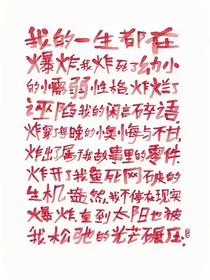 我的一生都在
爆炸我炸死了幼小
的懦弱性格炸烂了
诬陷我的闲言碎语
炸累了傍晚的悔与不甘
炸出了属于我故事里的零件
炸开了我鱼死网破的
生机盎然,我不停在现实
爆炸,直到太阳也被
我松驰的光芒碾压